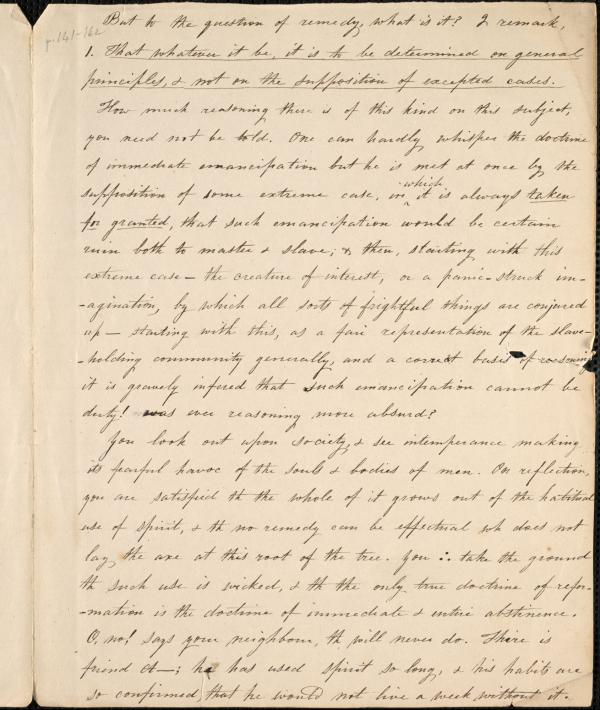 p. 141-162
But to the question of remedy, what is it? I remark,
1. That whatever it be, it is to be determined on general
principles, & not on the supposition of excepted cases.
How much reasoning there is of this kind on this subject,
you need not be told. One can hardly whisper the doctrine
of immediate emancipation but he is met at once by the
supposition of some extreme case, in which it is always taken
for granted, that such emancipation would be certain
ruin both to master & slave; & then, starting with this
extreme case — the creature of interest, or a panic-struck im-
-agination, by which all sorts of frightful things are conjured
up — starting with this, as a fair representation of the slave-
-holding community generally, and a correct basis of reasoning
it is gravely infered that such emancipation cannot be
duty! was ever reasoning more absurd?
You look out upon society, & see intemperance making
its fearful havoc of the souls & bodies of men. On reflection,
you are satisfied th the whole of it grows out of the habitual
use of spirit, & th no remedy can be effectual wh does not
lay the axe at this root of the tree. You ∴ take the ground
th such use is wicked, & th the only true doctrine of refor-
-mation is the doctrine of immediate & entire abstinence.
O, no! says your neighbour, th will never do. There is
friend A—; he has used spirit so long, & his habits are
so confirmed, that he would not live a week without it.